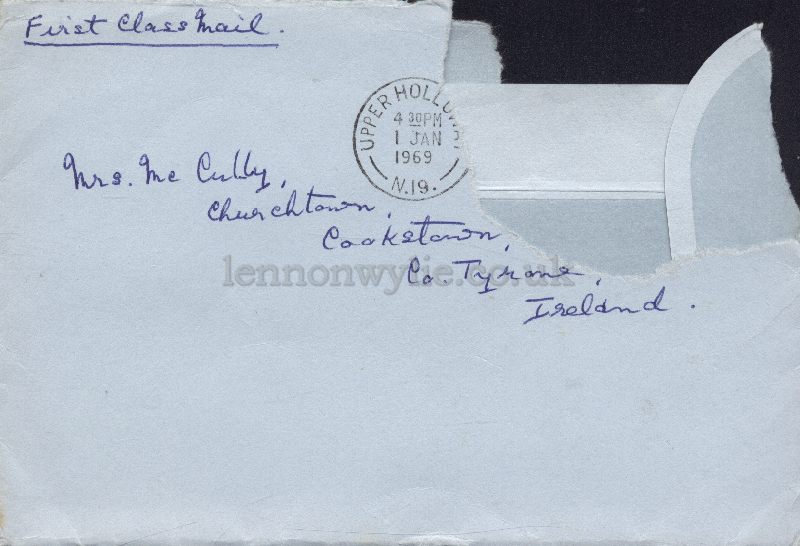 First Class Mail.
UPPER HOLLOWAY
4 30PM
1 JAN
1969
N.19.
Mrs. Mc Cully,
Churchtown,
Cookstown,
Co. Tyrone,
Ireland.
lennonwylie.co.uk